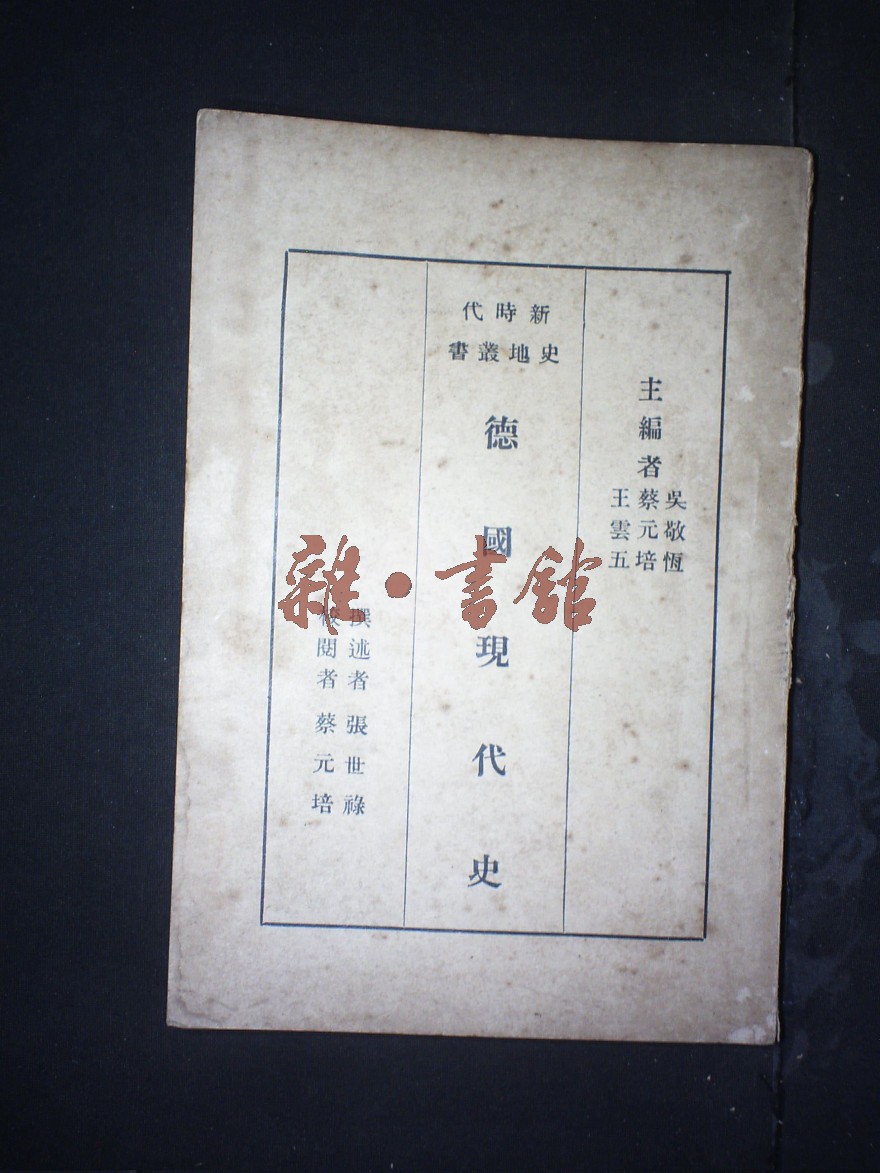 主編者
吳敬恆
蔡元培
王雲五
新時代
史地叢書
德國現代史
撰述者 張世祿
校閱者 蔡元培
雜·書館